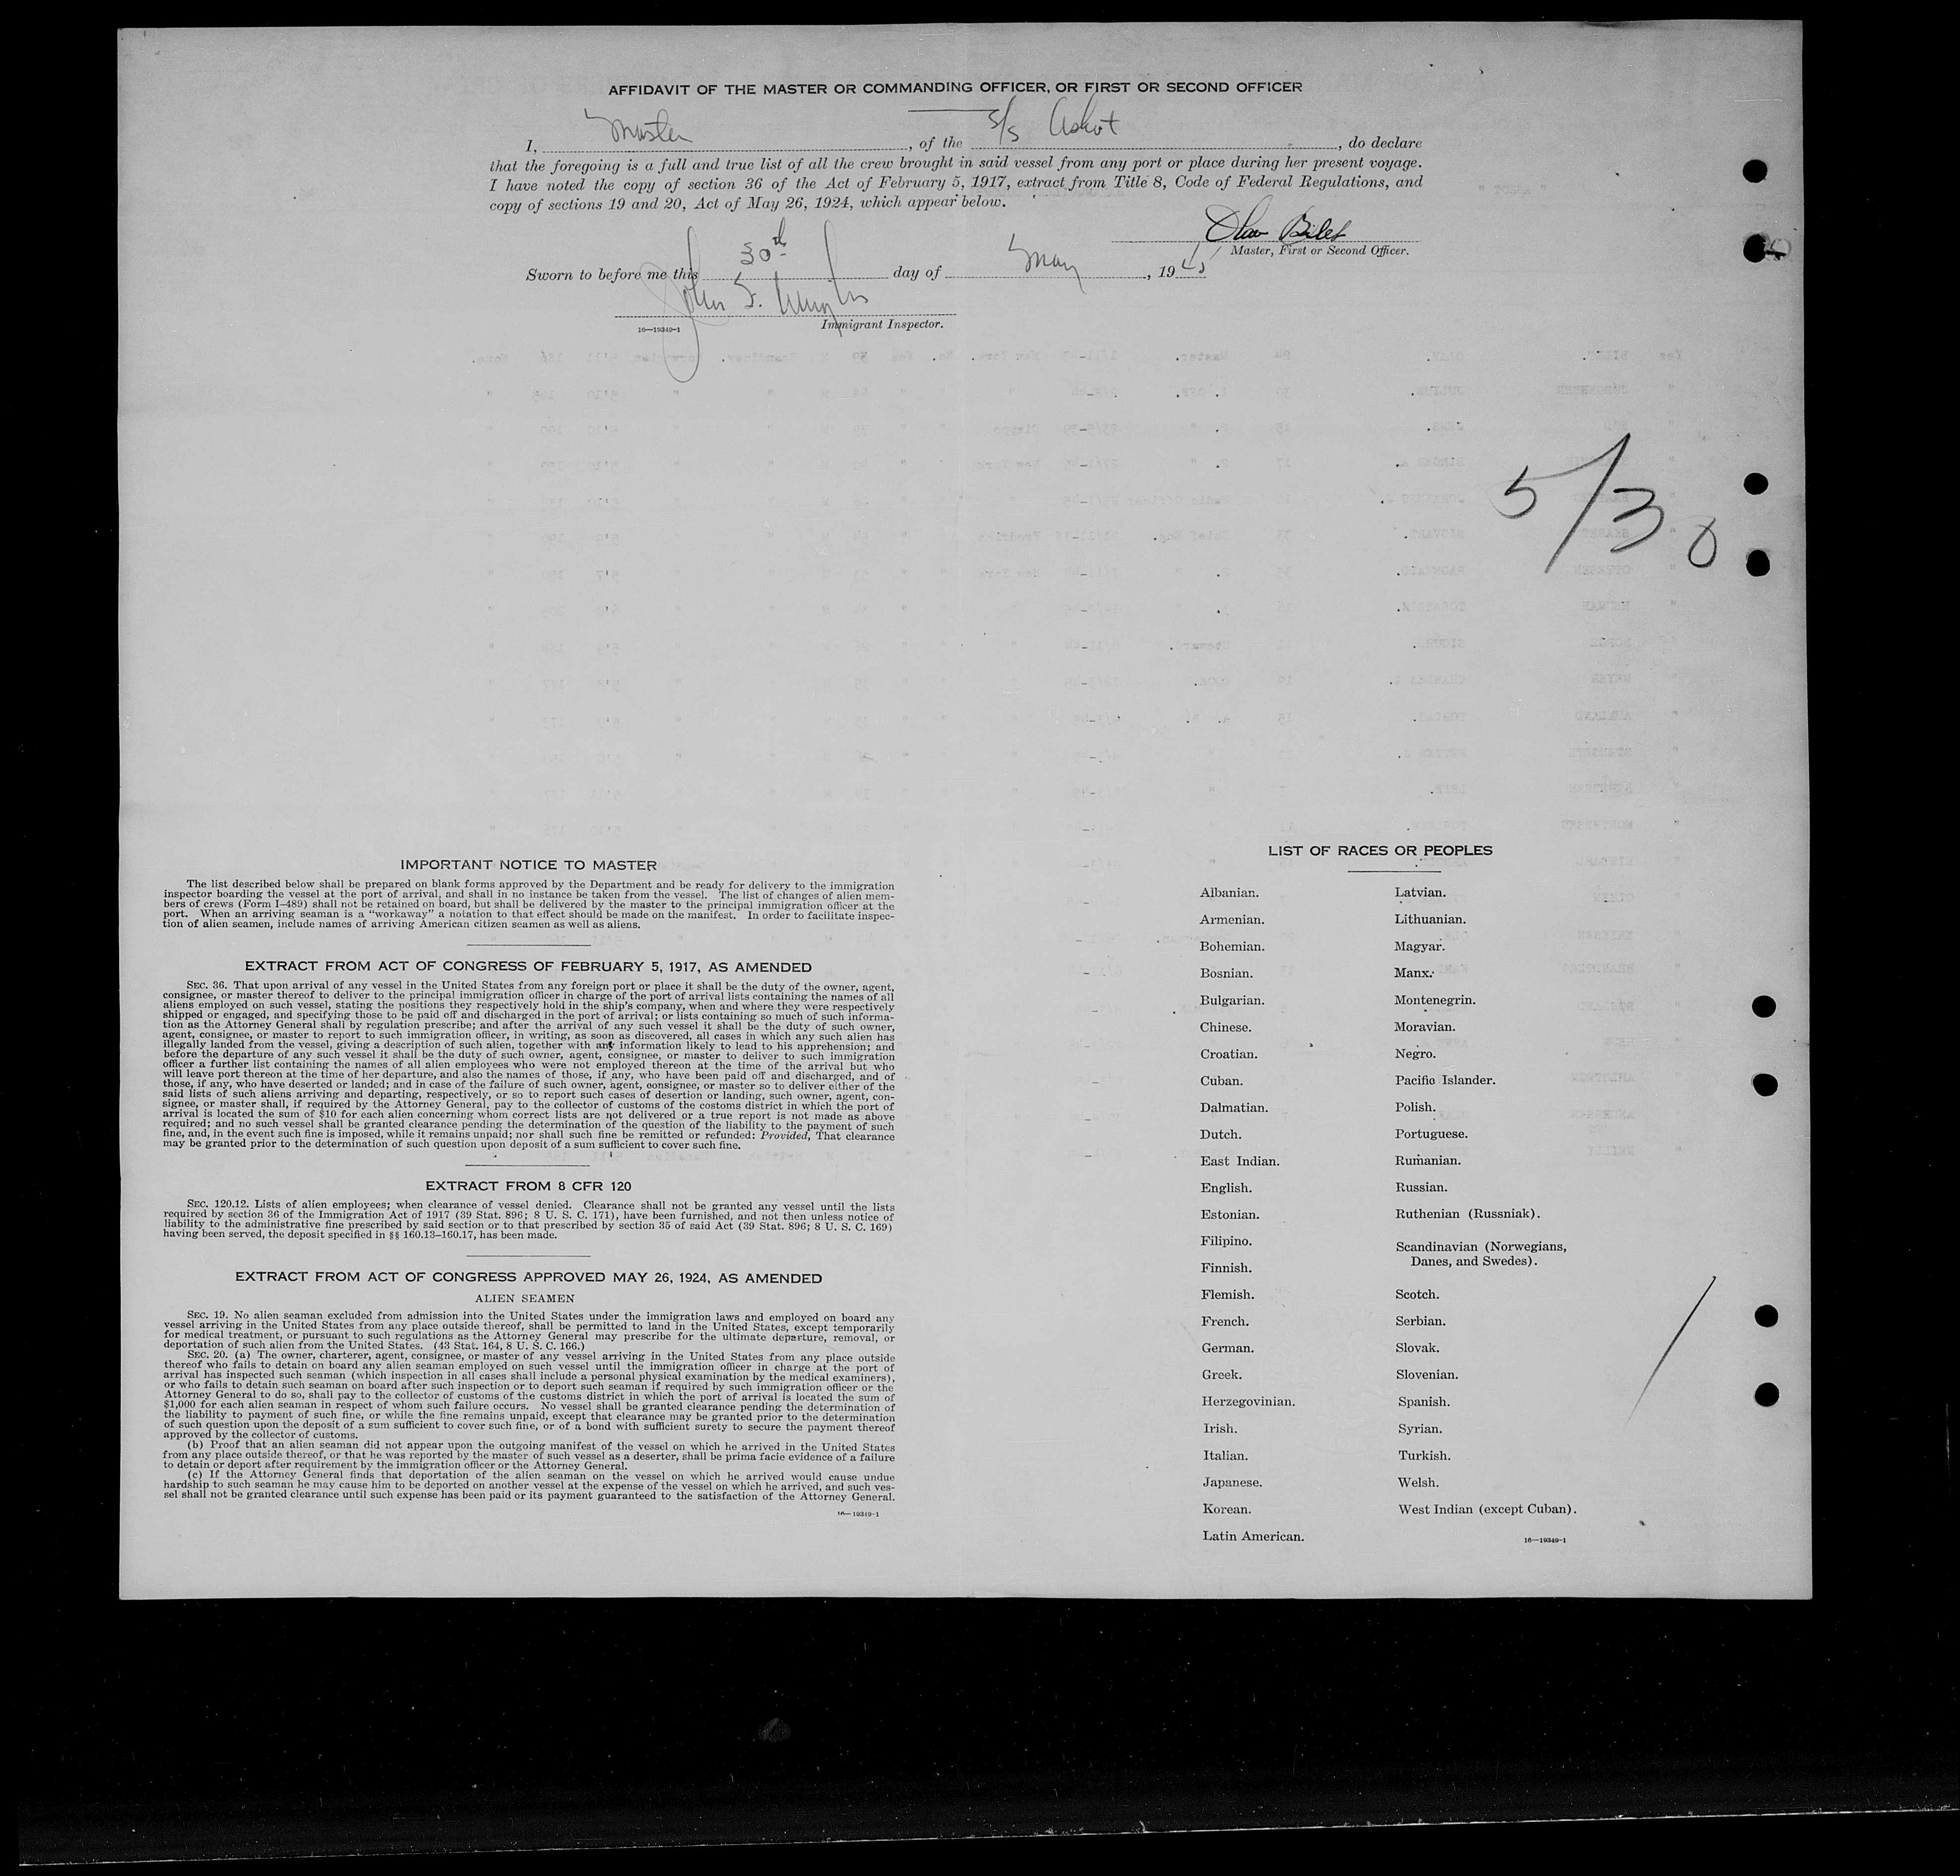 AFFIDAVIT OF THE MASTER OR COMMANDING OFFICER, OR FIRST OR SECOND OFFICER
I, Master, of the S/S, do declare
that the foregoing is a full and true list of all the crew brought in said vessel from any port or place during her present voyage.
I have noted the copy of section 36 of the Act of February 5, 1917, extract from Title 8, Code of Federal Regulations, and
copy of sections 19 and 20, Act of May 26, 1924, which appear below.
Master, First or Second Officer.
Sworn to before me this 30th day of May, 1945
John
16—19349-1 Immigrant Inspector.
5/30
IMPORTANT NOTICE TO MASTER
The list described below shall be prepared on blank forms approved by the Department and be ready for delivery to the immigration
inspector boarding the vessel at the port of arrival, and shall in no instance be taken from the vessel. The list of changes of alien mem-
bers of crews (Form I-489) shall not be retained on board, but shall be delivered by the master to the principal immigration officer at the
port. When an arriving seaman is a "workaway" a notation to that effect should be made on the manifest. In order to facilitate inspec-
tion of alien seamen, include names of arriving American citizen seamen as well as aliens.
EXTRACT FROM ACT OF CONGRESS OF FEBRUARY 5, 1917, AS AMENDED
SEC. 36. That upon arrival of any vessel in the United States from any foreign port or place it shall be the duty of the owner, agent,
consignee, or master thereof to deliver to the principal immigration officer in charge of the port of arrival lists containing the names of all
aliens employed on such vessel, stating the positions they respectively hold in the ship's company, when and where they were respectively
shipped or engaged, and specifying those to be paid off and discharged in the port of arrival; or lists containing so much of such informa-
tion as the Attorney General shall by regulation prescribe; and after the arrival of any such vessel it shall be the duty of such owner,
agent, consignee, or master to report to such immigration officer, in writing, as soon as discovered, all cases in which any such alien has
illegally landed from the vessel, giving a description of such alien, together with any information likely to lead to his apprehension; and
before the departure of any such vessel it shall be the duty of such owner, agent, consignee, or master to deliver to such immigration
officer a further list containing the names of all alien employees who were not employed thereon at the time of the arrival but who
will leave port thereon at the time of her departure, and also the names of those, if any, who have been paid off and discharged, and of
those, if any, who have deserted or landed; and in case of the failure of such owner, agent, consignee, or master so to deliver either of the
said lists of such aliens arriving and departing, respectively, or so to report such cases of desertion or landing, such owner, agent, con-
signee, or master shall, if required by the Attorney General, pay to the collector of customs of the costoms district in which the port of
arrival is located the sum of $10 for each alien concerning whom correct lists are not delivered or a true report is not made as above
required; and no such vessel shall be granted clearance pending the determination of the question of the liability to the payment of such
fine, and, in the event such fine is imposed, while it remains unpaid; nor shall such fine be remitted or refunded: Provided, That clearance
may be granted prior to the determination of such question upon deposit of a sum sufficient to cover such fine.
EXTRACT FROM 8 CFR 120
SEC. 120.12. Lists of alien employees; when clearance of vessel denied. Clearance shall not be granted any vessel until the lists
required by section 36 of the Immigration Act of 1917 (39 Stat. 896; 8 U. S. C. 171), have been furnished, and not then unless notice of
liability to the administrative fine prescribed by said section or to that prescribed by section 35 of said Act (39 Stat. 896; 8 U. S. C. 169)
having been served, the deposit specified in §§ 160.13–160.17, has been made.
EXTRACT FROM ACT OF CONGRESS APPROVED MAY 26, 1924, AS AMENDED
ALIEN SEAMEN
SEC. 19. No alien seaman excluded from admission into the United States under the immigration laws and employed on board any
vessel arriving in the United States from any place outside thereof, shall be permitted to land in the United States, except temporarily
for medical treatment, or pursuant to such regulations as the Attorney General may prescribe for the ultimate departure, removal, or
deportation of such alien from the United States. (43 Stat. 164, 8 U. S. C. 166.)
SEC. 20. (a) The owner, charterer, agent, consignee, or master of any vessel arriving in the United States from any place outside
thereof who fails to detain on board any alien seaman employed on such vessel until the immigration officer in charge at the port of
arrival has inspected such seaman (which inspection in all cases shall include a personal physical examination by the medical examiners),
or who fails to detain such seaman on board after such inspection or to deport such seaman if required by such immigration officer or the
Attorney General to do so, shall pay to the collector of customs of the customs district in which the port of arrival is located the sum of
$1,000 for each alien seaman in respect of whom such failure occurs. No vessel shall be granted clearance pending the determination of
the liability to payment of such fine, or while the fine remains unpaid, except that clearance may be granted prior to the determination
of such question upon the deposit of a sum sufficient to cover such fine, or of a bond with sufficient surety to secure the payment thereof
approved by the collector of customs.
(b) Proof that an alien seaman did not appear upon the outgoing manifest of the vessel on which he arrived in the United States
from any place outside thereof, or that he was reported by the master of such vessel as a deserter, shall be prima facie evidence of a failure
to detain or deport after requirement by the immigration officer or the Attorney General.
(c) If the Attorney General finds that deportation of the alien seaman on the vessel on which he arrived would cause undue
hardship to such seaman he may cause him to be deported on another vessel at the expense of the vessel on which he arrived, and such ves-
sel shall not be granted clearance until such expense has been paid or its payment guaranteed to the satisfaction of the Attorney General.
16—19349-1
LIST OF RACES OR PEOPLES
Albanian.
Armenian.
Bohemian.
Bosnian.
Bulgarian.
Chinese.
Croatian.
Cuban.
Dalmatian.
Dutch.
East Indian.
English.
Estonian.
Filipino.
Finnish.
Flemish.
French.
German.
Greek.
Herzegovinian.
Irish.
Italian.
Japanese.
Korean.
Latin American.
Latvian.
Lithuanian.
Magyar.
Manx.
Montenegrin.
Moravian.
Negro.
Pacific Islander.
Polish.
Portuguese.
Rumanian.
Russian.
Ruthenian (Russniak).
Scandinavian (Norwegians,
Danes, and Swedes).
Scotch.
Serbian.
Slovak.
Slovenian.
Spanish.
Syrian.
Turkish.
Welsh.
West Indian (except Cuban).
16—19349-1